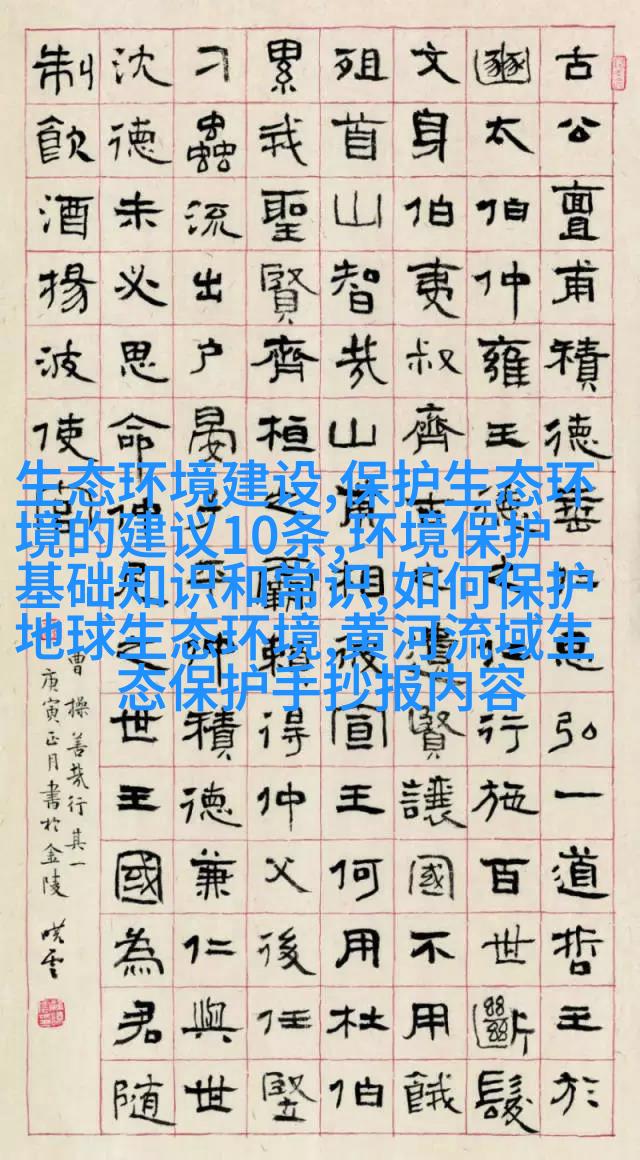 古公亶甫積德垂仁思弘一道哲王於
豳太伯仲雍王德之仁行施百世斷髮
文身伯夷叔齊古之遺賢讓國不用餓
殂首山智哉山甫相彼宣王何用杜伯
累我聖賢齊桓之霸賴得仲父後任豎
刁蟲流出戶晏子平仲積德兼仁與世
沈德未必思命仲尼之世王國為君隨
制飲酒揚波使官
曹操善哉行其一
庚寅正月書於金陵
生态环境建设,保护生态环
境的建议10条,环境保护
基础知识和常识,如何保护
地球生态环境,黄河流域生
态保护手抄报内容